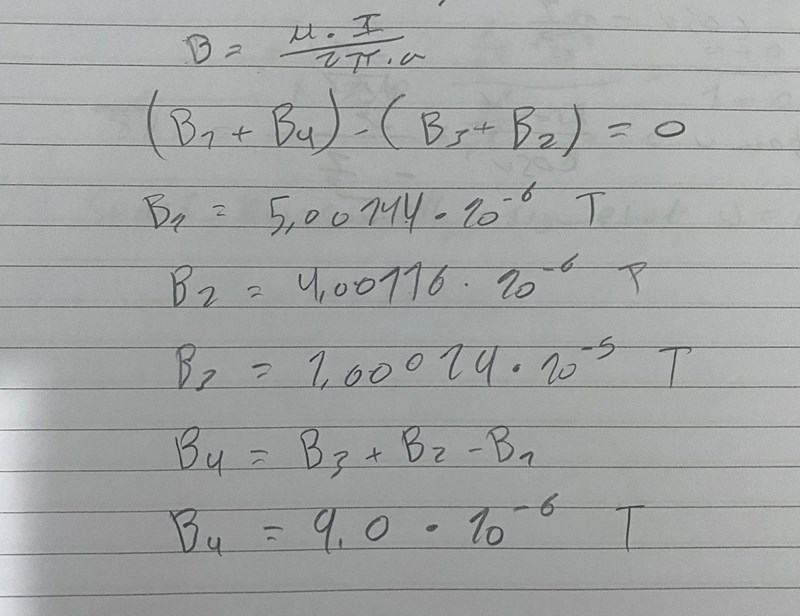 B = μ · I / 2π · a
(B₁ + B₄) - (B₃ + B₂) = 0
B₁ = 5,00144 · 10⁻⁶ T
B₂ = 4,00116 · 10⁻⁶ T
B₃ = 1,00024 · 10⁻⁵ T
B₄ = B₃ + B₂ - B₁
B₄ = 9,0 · 10⁻⁶ T